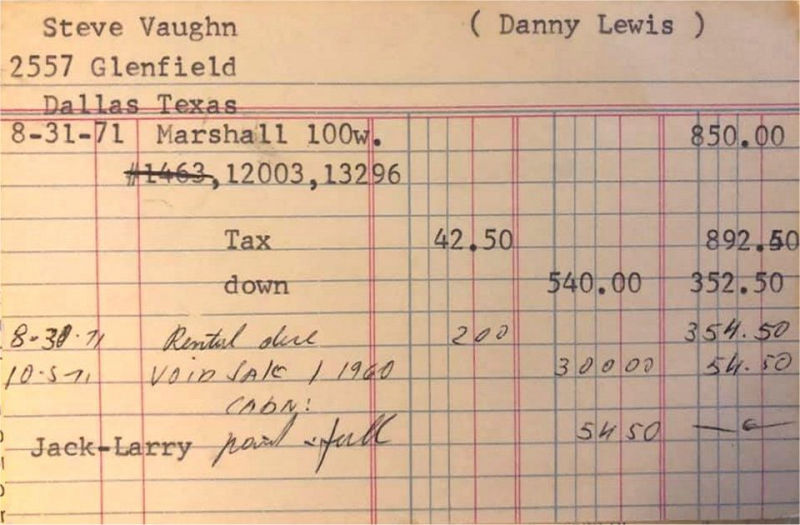 Steve Vaughn ( Danny Lewis )
2557 Glenfield
Dallas Texas
8-31-71 Marshall 100w. 850.00
#1463,12003,13296
Tax 42.50 892.50
down 540.00 352.50
8-30-71 Rental due 200 354.50
10-5-71 VOID SALE 1 1960 300 00 54.50
CABN:
Jack-Larry paid full 54 50